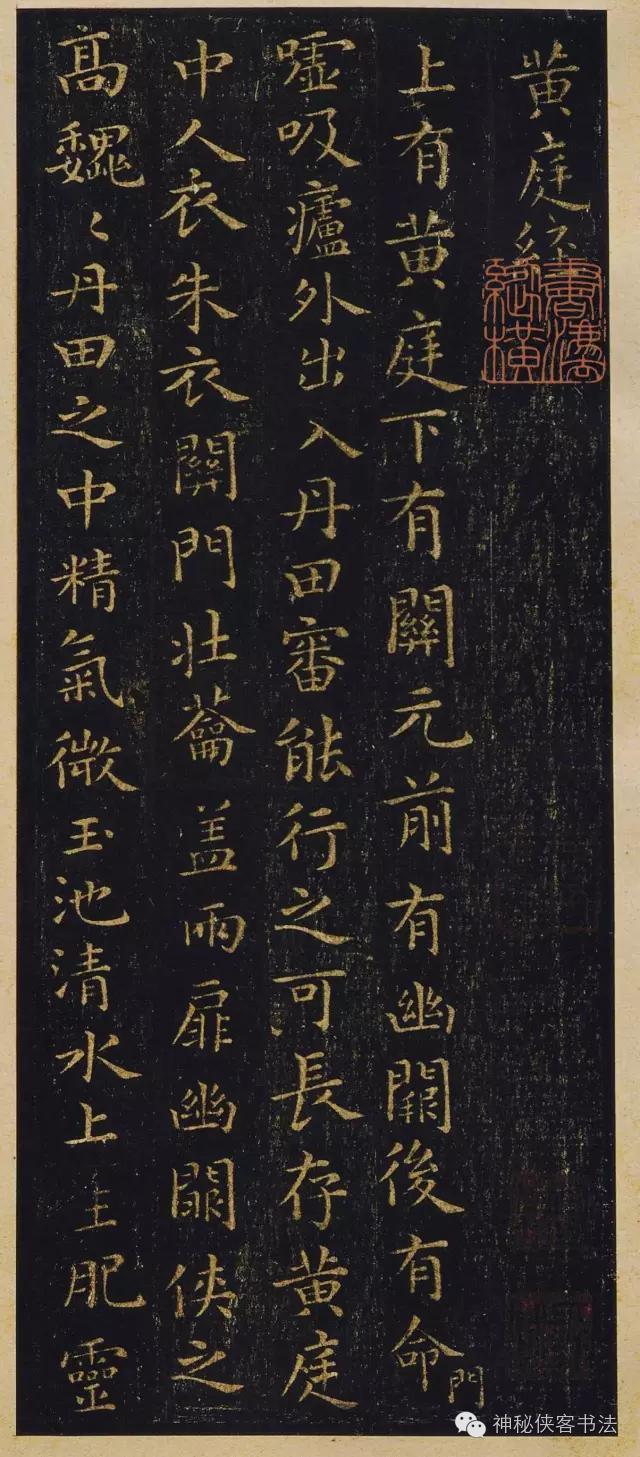 黄庭經
上有黄庭下有關元前有幽闕後有命門
嘘吸廬外出入丹田審能行之可長存黄庭
中人衣朱衣關門壯蘥盖兩扉幽闕俠之
高魏〻丹田之中精氣微玉池清水上生肥靈
神秘侠客书法